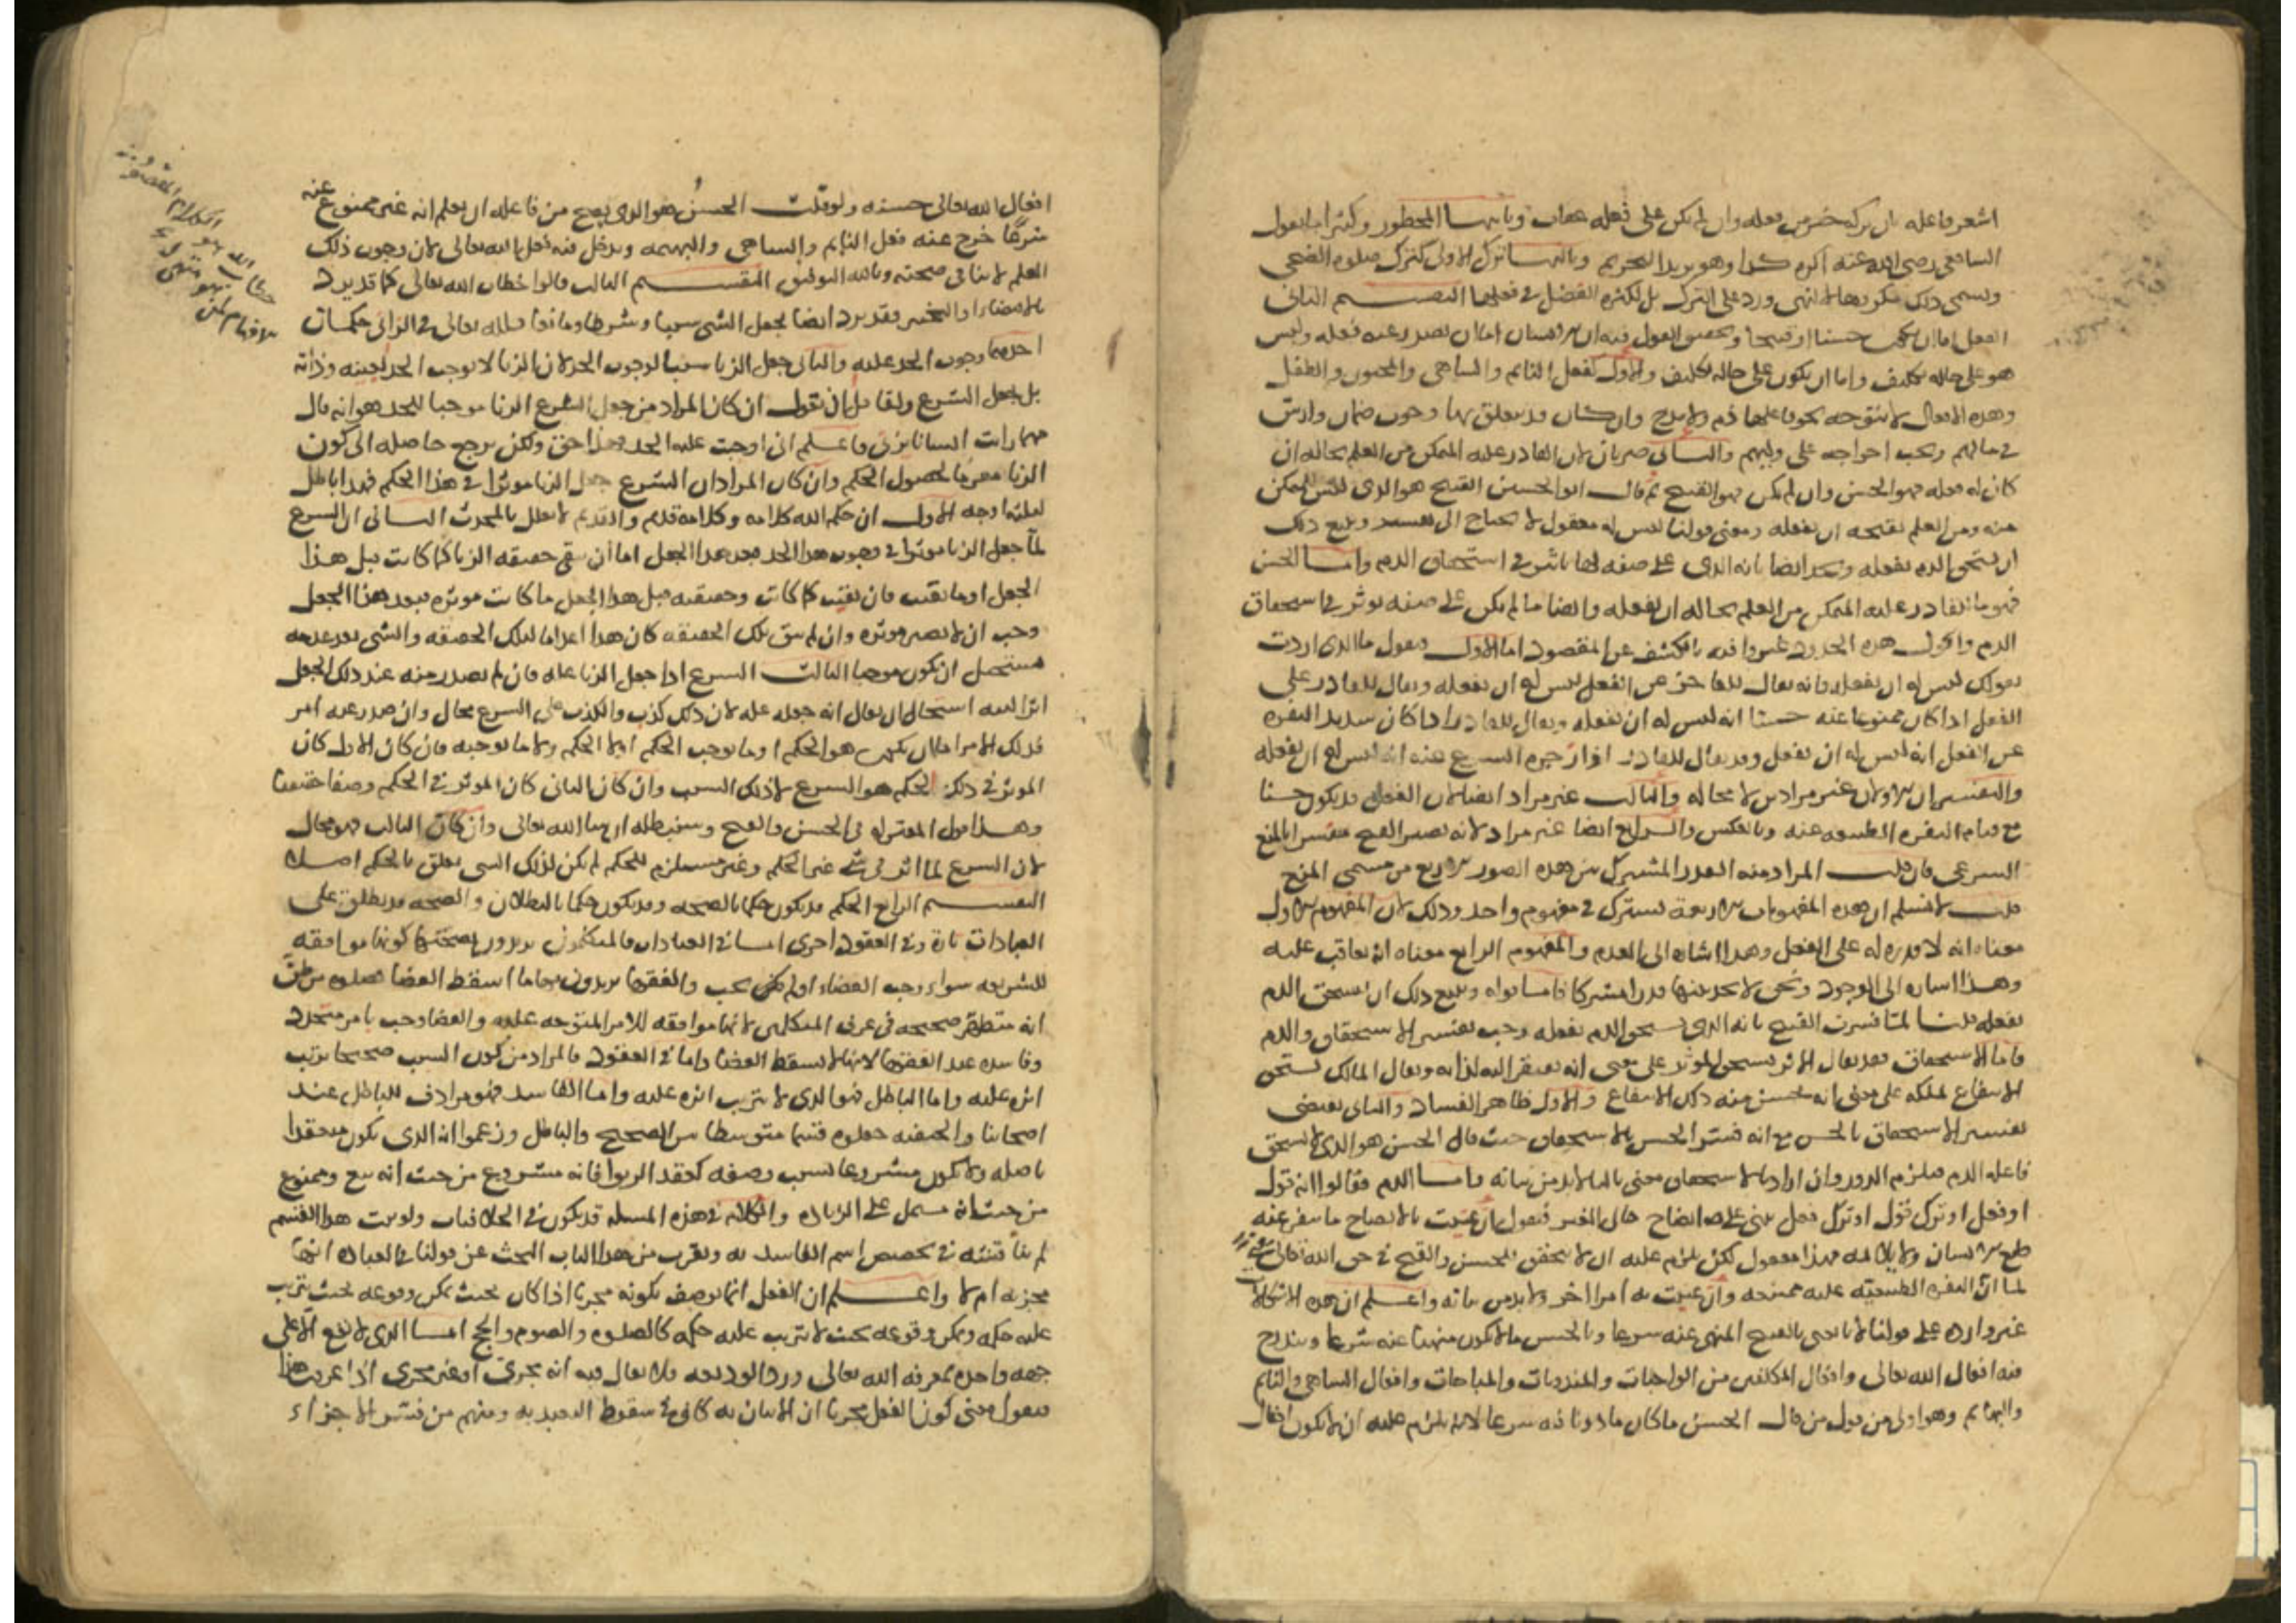 اشعر فاعله بان تركه خير من فعله وان لم يكن على فعله عقاب وثانيها المحظور وكثيرا ما يقول
الشافعي رضي الله عنه اكره كذا وهو يريد التحريم وثالثها ترك الاولى كترك صلوه الضحى
ويسمى ذلك مكروها لا لنهي ورد على الترك بل لكثره الفضل في فعلها التقسيم الثاني
الفعل اما ان يكون حسنا او قبيحا وتحقيق القول فيه ان الانسان اما ان يصدر عنه فعله وليس
هو على حاله تكليف واما ان يكون على حاله تكليف والاول كفعل النايم والساهي والمجنون والطفل
وهذه الافعال لا يتوجه نحو فاعلها ذم ولا مدح وان كان قد يتعلق بها وجوب ضمان وارش
في مالهم ويجب اخراجه على وليهم والثاني ضربان لان القادر عليه المتمكن من العلم بحاله ان
كان له فعله فهو الحسن وان لم يكن فهو القبيح ثم قال ابو الحسين القبيح هو الذي ليس للمتمكن
منه ومن العلم بقبحه ان يفعله ومعنى قولنا ليس له معقول لا يحتاج الى تفسير ويتبع ذلك
ان يستحق الذم بفعله ويحد ايضا بانه الذي على صفه لها تاثير في استحقاق الذم واما الحسن
فهو ما للقادر عليه المتمكن من العلم بحاله ان يفعله وايضا ما لم يكن على صفه يوثر في استحقاق
الذم واقول هذه الحدود غير وافيه بالكشف عن المقصود اما الاول فنقول ما الذي اردت
بقولك ليس له ان يفعله فانه يقال للعاجز عن الفعل ليس له ان يفعله ويقال للقادر على
الفعل اذا كان ممنوعا عنه حسا انه ليس له ان يفعله ويقال للقادر اذا كان شديد النفره
عن الفعل انه ليس له ان يفعل وقد يقال للقادر اذا زجره الشرع عنه انه ليس له ان يفعله
والتفسيران الاولان غير مرادين لا محاله والثالث غير مراد ايضا لان الفعل قد يكون حسنا
مع قيام النفره الطبيعيه عنه وبالعكس والرابع ايضا غير مراد لانه يصير القبيح مفسرا بالمنع
الشرعي فان قلت المراد منه القدر المشترك بين هذه الصور الاربع من مسمى المنع
قلت لا نسلم ان هذه المفهومات الاربعة تشترك في مفهوم واحد وذلك لان المفهوم الاول
معناه انه لا قدره له على الفعل وهذا اشاره الى العدم والمفهوم الرابع معناه انه يعاقب عليه
وهذا اشاره الى الوجود ونحن لا نجد بينها قدرا مشتركا فاما قوله ويتبع ذلك ان يستحق الذم
بفعله قلنا لما فسرت القبيح بانه الذي يستحق الذم بفعله وجب تفسير الاستحقاق والذم
فاما الاستحقاق فقد يقال الاثر يستحق الموثر على معنى انه يفتقر اليه لذاته ويقال المالك يستحق
الانتفاع بملكه على معنى انه يحسن منه ذلك الانتفاع والاول ظاهر الفساد والثاني يقتضي
تفسير الاستحقاق بالحسن مع انه فسر الحسن بالاستحقاق حيث قال الحسن هو الذي لا يستحق
فاعله الذم فيلزم الدور وان اراد بالاستحقاق معنى ثالثا فلا بد من بيانه واما الذم فقالوا انه قول
او فعل او ترك قول او ترك فعل ينبي عن اتضاح حال الغير فنقول ان عنيت بالاتضاح ما ينفر عنه
طبع الانسان ولا يلايمه فهذا معقول لكن يلزم عليه ان لا يتحقق الحسن والقبح في حق الله تعالى
لما ان النفره الطبيعيه عليه ممتنعه وان عنيت به امرا اخر فلا بد من بيانه واعلم ان هذه الاشكالات
غير وارده على قولنا لانا نعني بالقبيح المنهي عنه شرعا وبالحسن ما لا يكون منهيا عنه شرعا ويندرج
فيه افعال الله تعالى وافعال المكلفين من الواجبات والمندوبات والمباحات وافعال الساهي والنايم
والبهايم وهو اولى من قول من قال الحسن ما كان ماذونا فيه شرعا لانه يلزم عليه ان لا يكون افعال
افعال الله تعالى حسنه ولو قلت الحسن هو الذي يصح من فاعله ان يعلم انه غير ممنوع عنه
شرعا خرج عنه فعل النايم والساهي والبهيمه ويدخل فيه فعل الله تعالى لان وجوب ذلك
العلم لا ينافي صحته وبالله التوفيق التقسيم الثالث قالوا خطاب الله تعالى كما قد يرد
بالاقتضاء او التخيير فقد يرد ايضا بجعل الشي سببا وشرطا ومانعا فلله تعالى في الزاني حكمان
احدهما وجوب الحد عليه والثاني جعل الزنا سببا لوجوب الحد لان الزنا لا يوجب الحد لعينه وذاته
بل بجعل الشرع ولقايل ان يقول ان كان المراد من جعل الشرع الزنا موجبا للحد هو انه قال
مهما رايت انسانا يزني فاعلم اني اوجبت عليه الحد فهذا حق ولكن يرجع حاصله الى كون
الزنا معرفا لحصول الحكم وان كان المراد ان الشرع جعل الزنا موثرا في هذا الحكم فهذا باطل
لثلثه اوجه الاول ان حكم الله كلامه وكلامه قديم والقديم لا يعلل بالمحدث الثاني ان الشرع
لما جعل الزنا موثرا في وجوب هذا الحد فبعد هذا الجعل اما ان تبقى حقيقه الزنا كما كانت قبل هذا
الجعل او ما بقيت فان بقيت كما كانت وحقيقته قبل هذا الجعل ما كانت موثره فبعد هذا الجعل
وجب ان لا تصير موثره وان لم تبق تلك الحقيقه كان هذا اعداما لتلك الحقيقه والشي بعد عدمه
يستحيل ان يكون موجبا الثالث الشرع اذا جعل الزنا عله فان لم يصدر منه عند ذلك الجعل
اثر البته استحال ان يقال انه جعله عله لان ذلك كذب والكذب على الشرع محال وان صدر عنه امر
فذلك الامر اما ان يكون هو الحكم او ما يوجب الحكم او لا الحكم ولا ما يوجبه فان كان الاول كان
الموثر في ذلك الحكم هو الشرع لا ذلك السبب وان كان الثاني كان الموثر في الحكم وصفا حقيقيا
وهذا قول المعتزله في الحسن والقبح وسنبطله ان شا الله تعالى وان كان الثالث فهو محال
لان الشرع لما اثر في شي غير الحكم وغير مستلزم للحكم لم يكن لذلك الشي تعلق بالحكم اصلا
التقسيم الرابع الحكم قد يكون حكما بالصحه وقد يكون حكما بالبطلان والصحه قد تطلق على
العبادات تارة وفي العقود اخرى اما في العبادات فالمتكلمون يريدون بصحتها كونها موافقه
للشريعه سواء وجب القضاء او لم يجب والفقها يريدون بها ما اسقط القضا فصلوه من ظن
انه متطهر صحيحه في عرف المتكلمين لانها موافقه للامر المتوجه عليه والقضا وجب بامر متجدد
وفاسده عند الفقها لانها لا تسقط القضا واما في العقود فالمراد من كون السبب صحيحا ترتب
اثره عليه واما الباطل فهو الذي لا يترتب اثره عليه واما الفاسد فهو مرادف للباطل عند
اصحابنا والحنفيه جعلوه قسما متوسطا بين الصحيح والباطل وزعموا انه الذي يكون منعقدا
باصله ولا يكون مشروعا بسبب وصفه كعقد الربوا فانه مشروع من حيث انه بيع وممنوع
من حيث انه مشتمل على الزياده والكلام في هذه المسله قد يكون في الخلافيات ولو ثبت هذا القسم
لم يناقشه في تخصيص اسم الفاسد به ويقرب من هذا الباب البحث عن قولنا في العباده انها
مجزيه ام لا واعلم ان الفعل انما يوصف بكونه مجزيا اذا كان بحيث يمكن وقوعه بحيث يترتب
عليه حكمه ويمكن وقوعه بحيث لا يترتب عليه حكمه كالصلوه والصوم والحج اما الذي لا يقع الا على
جهه واحده كمعرفه الله تعالى ورد الوديعه فلا يقال فيه انه مجزى او غير مجزى اذا عرفت هذا
فنقول معنى كون الفعل مجزيا ان الاتيان به كاف في سقوط التعبد به ومنهم من فسر الاجزاء